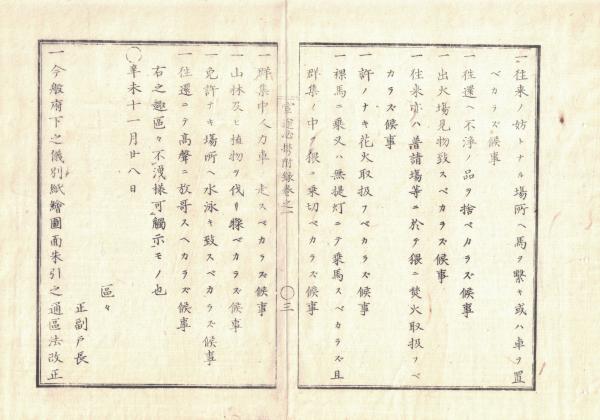 一往来ノ妨トナル場所ヘ馬ヲ繋キ或ハ車ヲ置
ベカラズ候事
一往還ヘ不淨ノ品ヲ捨ベカラズ候事
一出火場見物致スベカラズ候事
一往来亦ハ普請場等ニ於テ猥ニ焚火取扱フベ
カラズ候事
一許ノナキ花火取扱フベカラズ候事
一裸馬ニ乗又ハ無提灯ニテ乗馬スベカラズ且
群集ノ中ヲ猥ニ乗切ベカラズ候事
附録巻之一
〇三
一群集中人力車ヲ走スベカラズ候事
一山林及ヒ植物ヲ伐リ採ベカラズ候事
一免許ナキ場所ヘ水泳キ致スベカラズ候事
一往還ニテ高聲ニ放哥スヘカラズ候事
右之趣區々不洩様可觸示モノ也
〇辛未十一月廿八日
區々
正副戸長
一今般府下之儀別紙繪圖面朱引之通區法改正